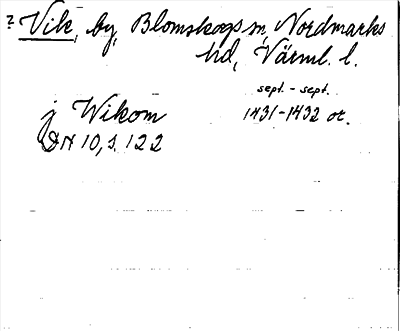 ? Vik, by, Blomskogs sn, Nordmarks
hd, Värml. l.
sept. - sept.
j Wikom 1431-1432 or.
DN 10, s. 122